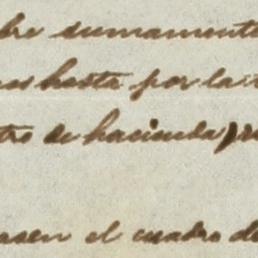 bre sumamente
hasta por la
tro de hacienda, pr
asen el cuadro de